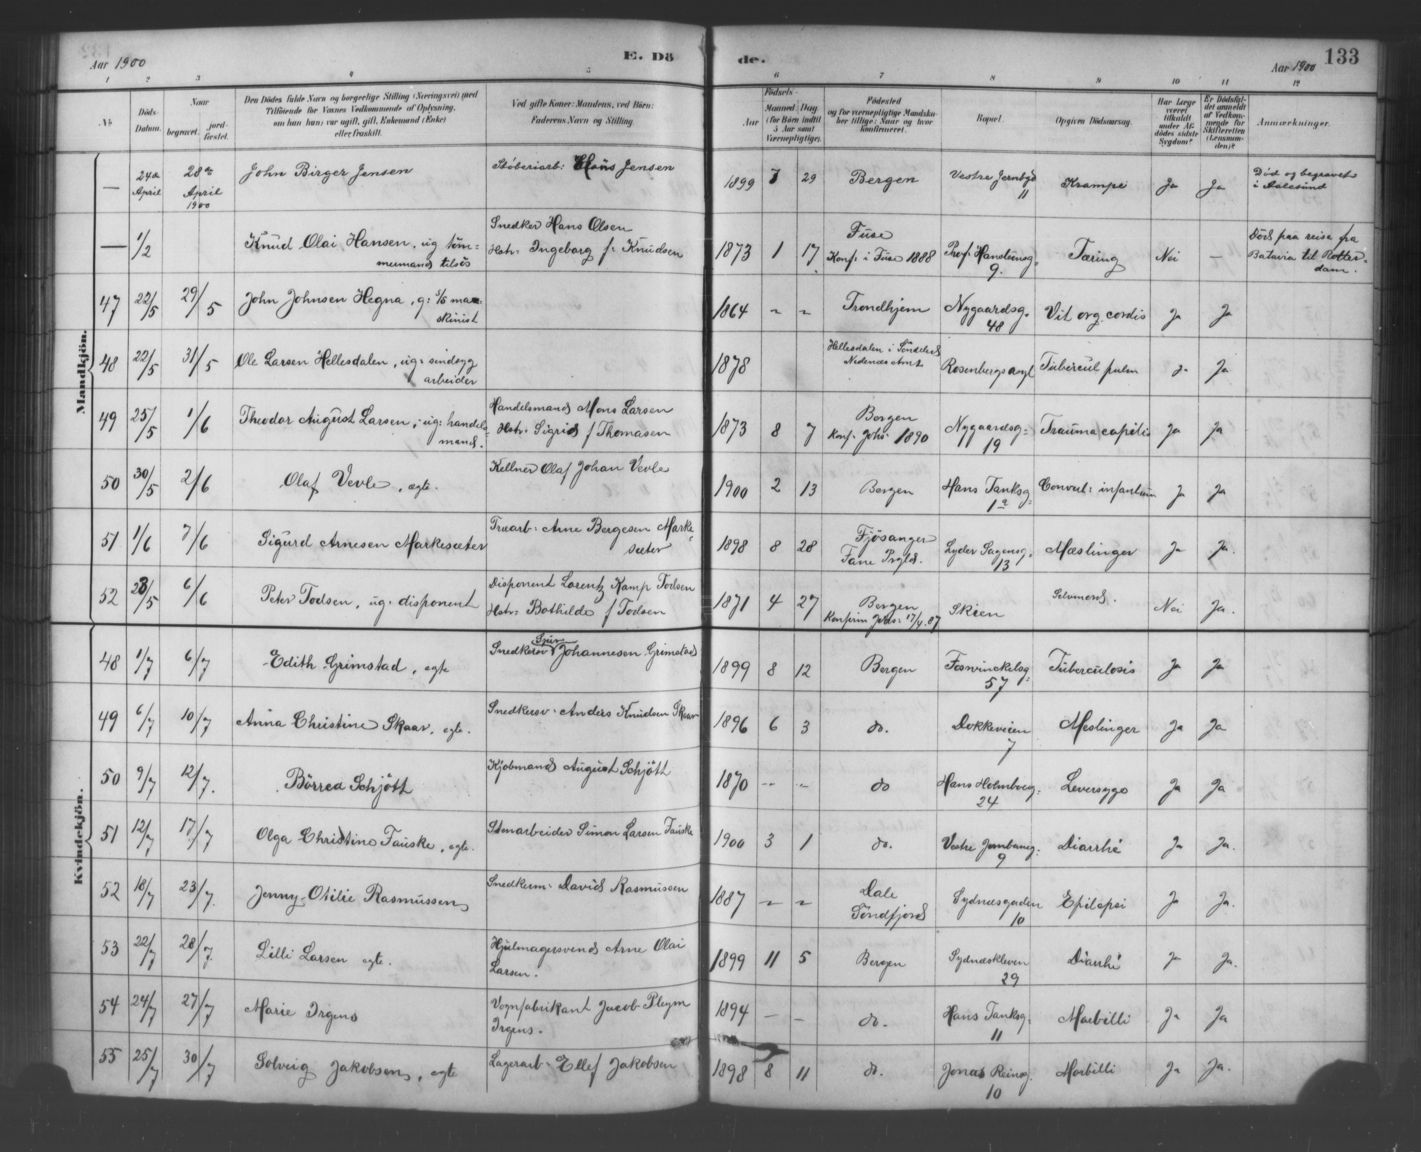 Aar 1900
E. Dö
de.
Aar 1900
133
1 2 3 4 5 6 7 8 9 10 11 12
No
Döds-Datum.
Naar
begravet.
jord-fæstet.
Den Dödes fulde Navn og borgerlige Stilling (Næringsvei) med
Tilföiende for Voxnes Vedkommende af Oplysning,
om han (hun) var ugift, gift, Enkemand (Enke)
eller fraskilt.
Ved gifte Koner: Mandens, ved Börn:
Faderens Navn og Stilling.
Födsels-
Aar
Maaned
Dag
(for Börn indtil
5 Aar samt
Værnepligtige).
Födested
og for værnepligtige Mandskaber tillige: Naar og hvor
konfirmeret.
Bopæl.
Opgiven Dödsaarsag.
Har Læge
været
tilkaldt
under Afdödes sidste
Sygdom?
Er Dödsfaldet anmeldt
af Vedkommende for
Skifteretten
(Lensmanden)?
Anmærkninger.
Mandkjön.
— 24de April 28de April 1900 John Birger Jensen Støberiarb: Hans Jensen 1899 7 29 Bergen Vestre Jernbgd 11 Krampe Ja Ja Död og begravet i Aalesund
— 1/2 Knud Olai Hansen, ug töm=mermand tilsös Snedker Hans Olsen Hstr: Ingeborg f: Knudsen 1873 1 17 Fuse Konf: i Fuse 1888 Prof: Hansteensg. 9. Tæring Nei — Död paa reise fra Batavia til Rotterdam.
47 22/5 29/5 John Johnsen Hegna, g: s/s maskinist 1864 " " Trondhjem Nygaardsg. 48 Vit org. cordis Ja Ja
48 22/5 31/5 Ole Larsen Hellesdalen, ug: sindsyg arbeider 1878 Hellesdalen i Söndeled Nedenæs Amt Rosenbergs asyl Tubercul pulm Ja Ja.
49 25/5 1/6 Theodor August Larsen, ug: handelsmand. Handelsmand Mons Larsen Hstr: Sigrid f Thomasen 1873 8 7 Bergen Konf: Johs: 1890 Nygaardsg: 19 Trauma capitis Ja Ja
50 30/5 2/6 Olaf Vevle, egte. Kellner Olaf Johan Vevle 1900 2 13 Bergen Hans Tanksg: 1a Convul: infantum Ja Ja
51 1/6 7/6 Sigurd Arnesen Markesæter Træarb: Arne Bergesen Markesæter 1898 8 28 Fjösanger Fane Prgld. Lyder Sagensg. 13 Mæslinger Ja Ja.
52 28/5 6/6 Peter Todsen, ug. disponent Disponent Lorentz Kamp Todsen Hstr: Bothilde f Todsen 1871 4 27 Bergen Konfirm Johs: 17/4.87 Skien Selvmord. Nei Ja.
Kvindekjön.
48 1/7 6/7 Edith Grimstad, egte Snedkersv Johannesen Grimstad 1899 8 12 Bergen Fosvinckelsg: 57 Tuberculosis Ja Ja
49 6/7 10/7 Anna Christine Skaar, egte. Snedkersv. Anders Knudsen Skaar 1896 6 3 do. Dokkeveien 7 Meslinger Ja Ja
50 9/7 12/7. Börrea Schjött Kjöbmand August Schjött 1870 " " do Hans Holmboeg: 24 Leversyge Ja Ja
51 12/7 17/7 Olga Christine Fauske, egte. Stenarbeider Simon Larsen Fauske 1900 3 1 do. Vestre Jernbaneg: 9 Diarrhé Ja Ja.
52 18/7 23/7. Jenny Otilie Rasmussen Snedkerm: David Rasmussen 1887 " " Dale Söndfjord Sydnæsgaden 10 Epilepsi Ja Ja.
53 22/7 28/7. Lilli Larsen egte. Hjulmagersvend Arne Olai Larsen. 1899 11 5 Bergen Sydnæskleven 29 Diarrhé Ja Ja.
54 24/7 27/7 Marie Irgens Vognfabrikant Jacob Pleym Irgens. 1894 — — do. Hans Tanksg: 11 Morbilli Ja Ja
55 25/7 30/7 Solveig Jakobsen, egte Lagerarb. Ellef Jakobsen 1898 8 11 do. Jonas Reinsg. 10 Morbilli Ja Ja.